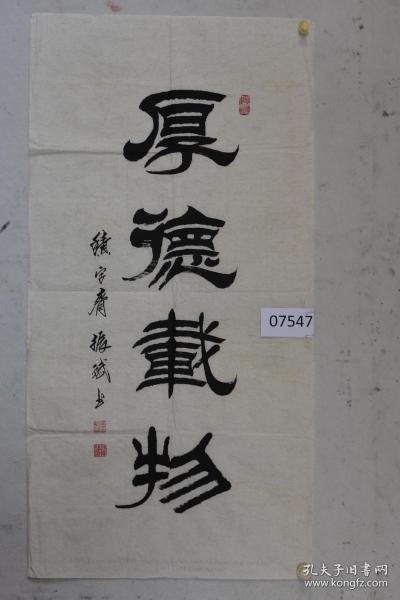 厚德載物
振斌书
07547
孔夫子旧书网
www.kongfz.com